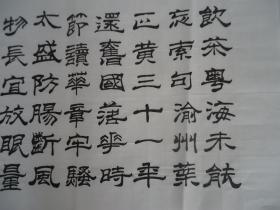 飲茶粵海未能
忘索句渝州葉
正黄三十一年
還舊國落華時
節讀華章牢騷
太盛防腸斷風
物長宜放眼量